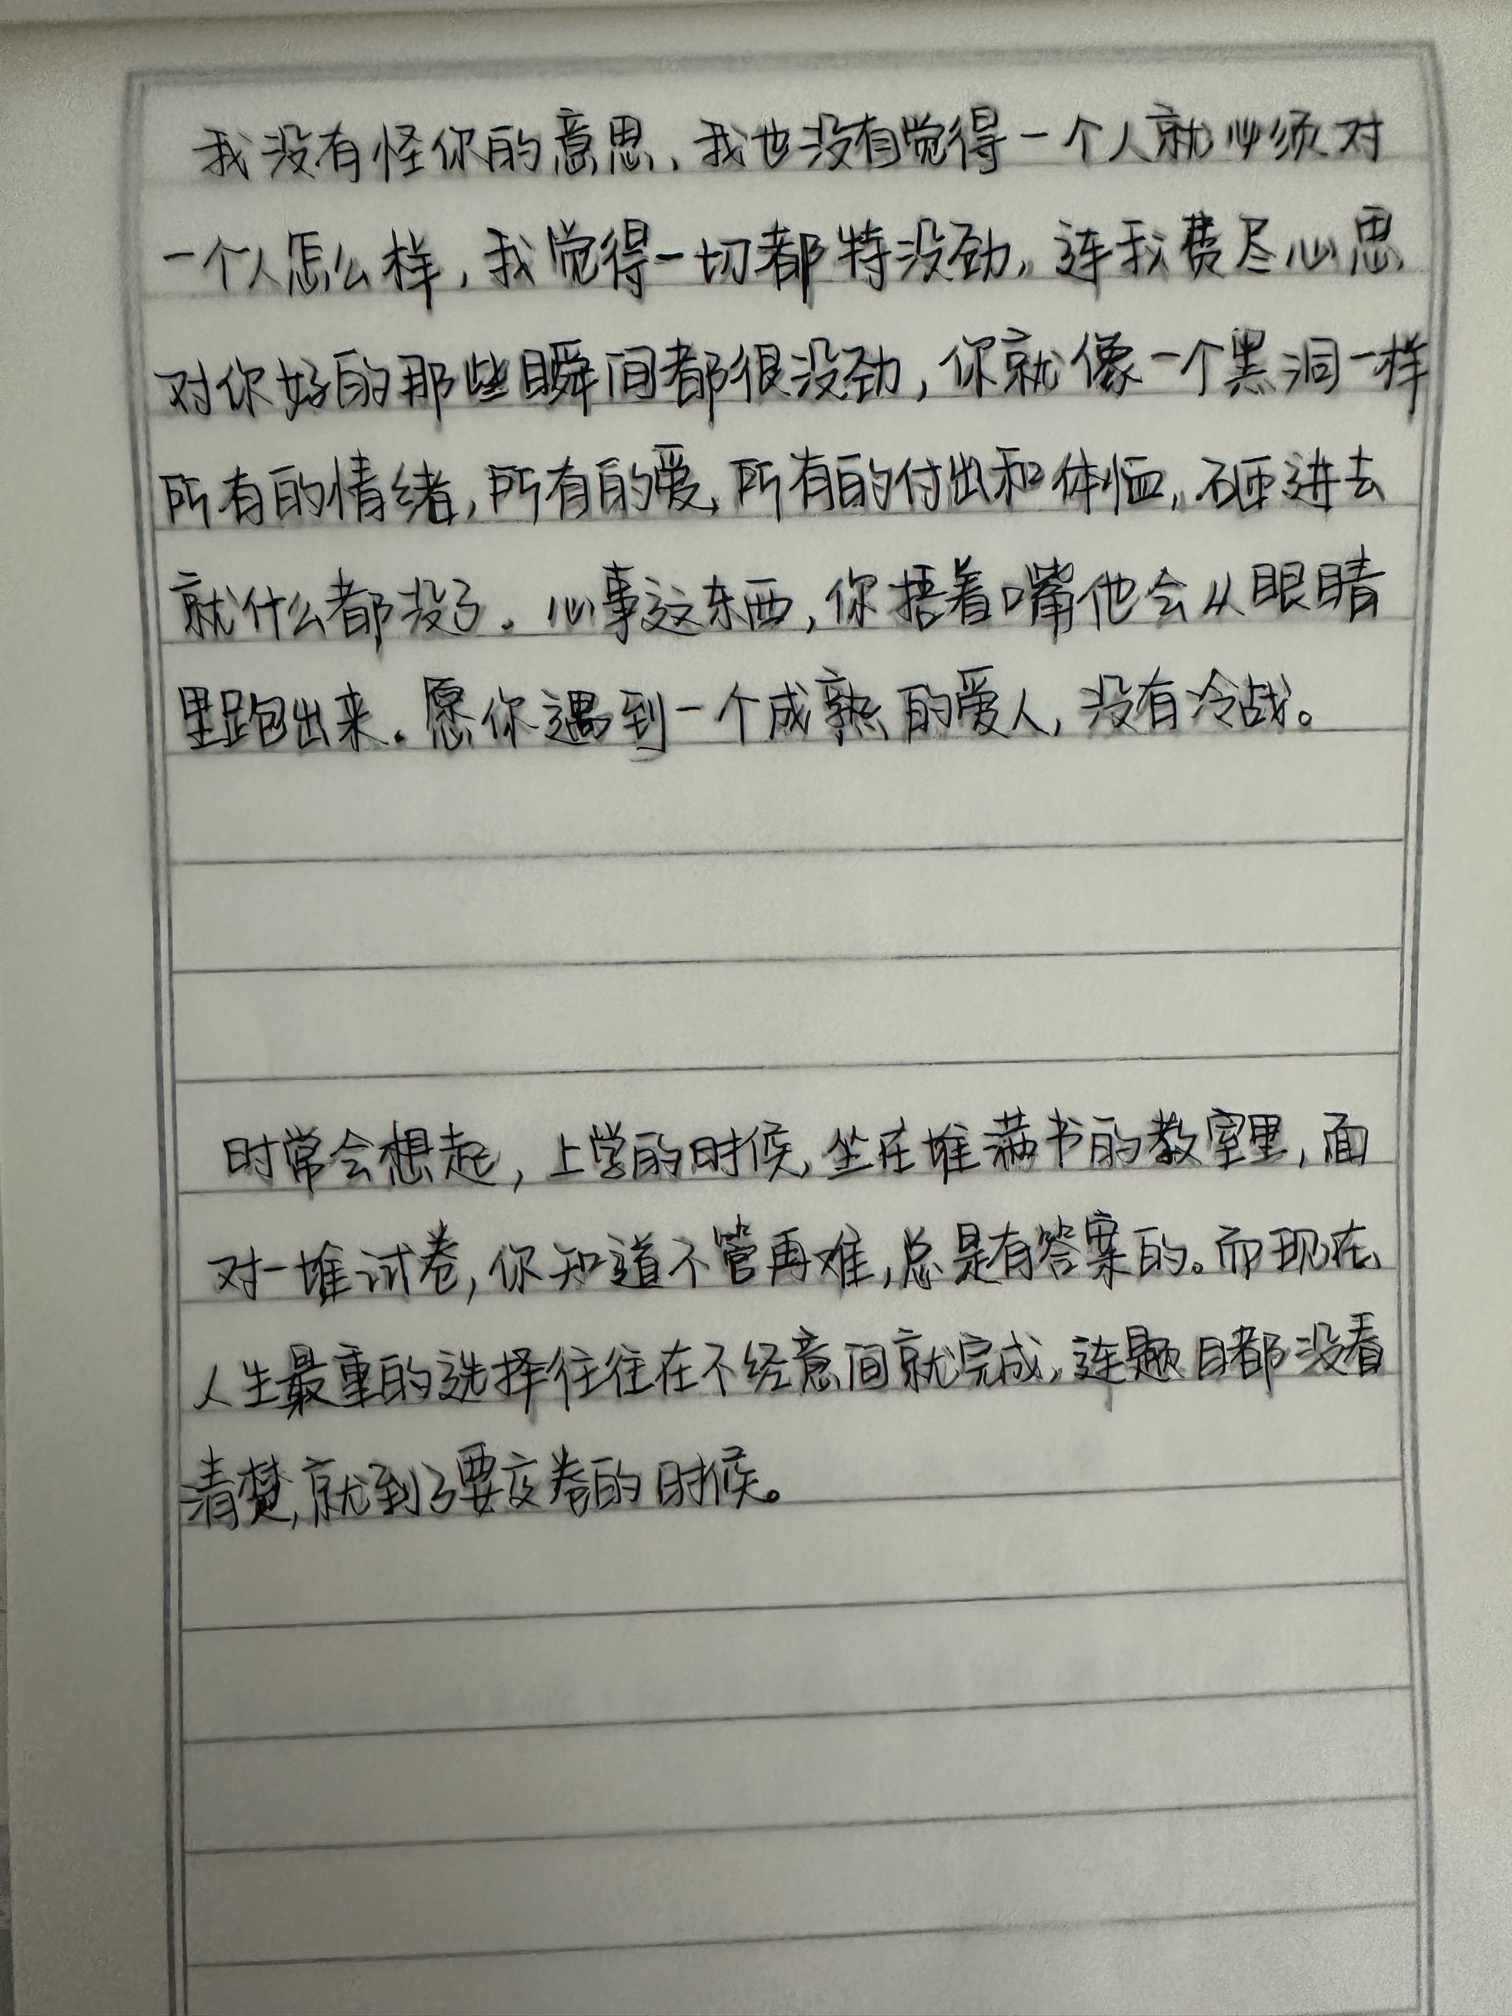 我没有怪你的意思、我也没有觉得一个人就必须对
一个人怎么样,我觉得一切都特没劲,连我费尽心思
对你好的那些瞬间都很没劲,你就像一个黑洞一样
所有的情绪,所有的爱,所有的付出和体恤,砸进去
就什么都没了。心事这东西,你捂着嘴他会从眼睛
里跑出来。愿你遇到一个成熟的爱人,没有冷战。
时常会想起,上学的时候,坐在堆满书的教室里,面
对一堆试卷,你知道不管再难,总是有答案的。而现在
人生最重的选择往往在不经意间就完成,连题目都没看
清楚,就到了要交卷的时候。